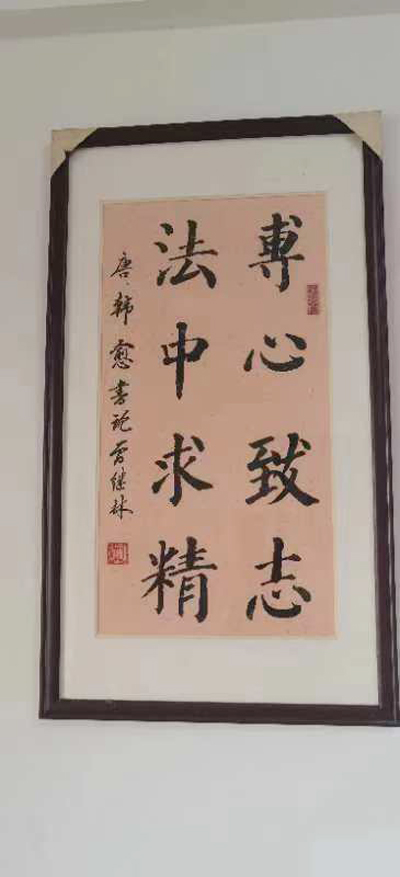 專心致志
法中求精
唐韩愈书论曹继林